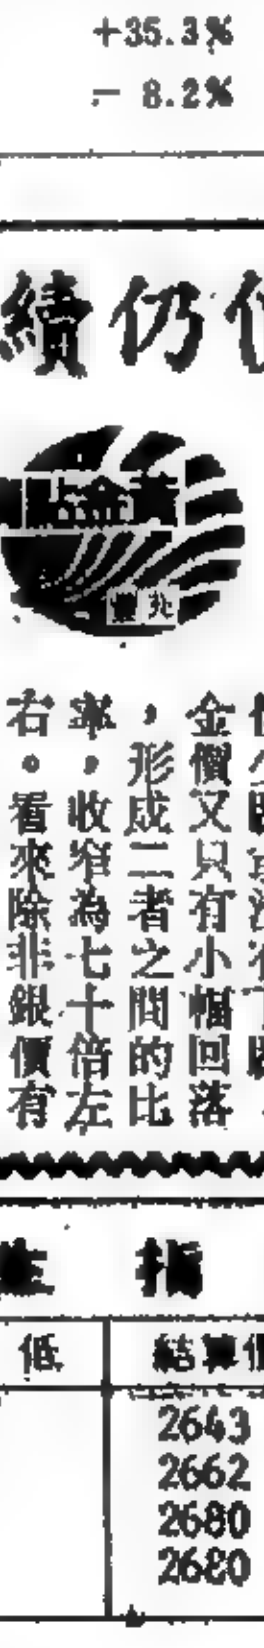 +35.3%
- 8.2%
續仍
黃金
北
金價又只有小幅回落
，形成二者之間的比
率，收窄為七十倍左
右。看來除非銀價有
指
低 結算價
2643
2662
2680
2680